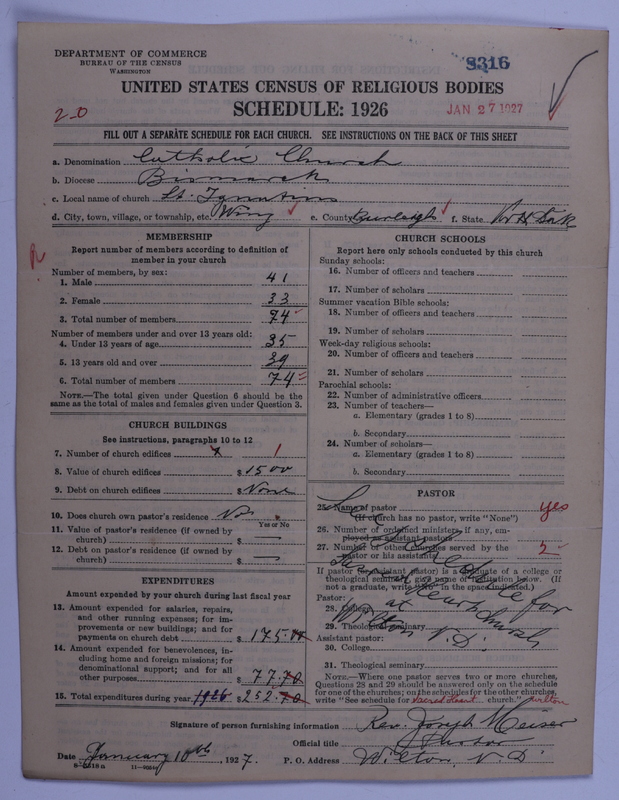 DEPARTMENT OF COMMERCE
BUREAU OF THE CENSUS
WASHINGTON
8316
UNITED STATES CENSUS OF RELIGIOUS BODIES
SCHEDULE: 1926
JAN 27 1927
2-0
FILL OUT A SEPARATE SCHEDULE FOR EACH CHURCH. SEE INSTRUCTIONS ON THE BACK OF THIS SHEET
a. Denomination Catholic Church
b. Diocese Bismarck
c. Local name of church St. Ignatius
d. City, town, village, or township, etc. Wing e. County Burleigh f. State
MEMBERSHIP
Report number of members according to definition of
member in your church
Number of members, by sex:
1. Male 41
2. Female 33
3. Total number of members 74
Number of members under and over 13 years old:
4. Under 13 years of age 35
5. 13 years old and over 39
6. Total number of members 74
NOTE.—The total given under Question 6 should be
same as the total of males and females given under Question 3.
CHURCH BUILDINGS
See instructions, paragraphs 10 to 12
7. Number of church edifices 1
8. Value of church edifices $ 1500
9. Debt on church edifices $ None
10. Does church own pastor's residence? No
Yes or No
11. Value of pastor's residence (if owned by
church) $ —
12. Debt on pastor's residence (if owned by
church) $ —
EXPENDITURES
Amount expended by your church during last fiscal year
13. Amount expended for salaries, repairs,
and other running expenses; for im-
provements or new buildings; and for
payments on church debt $ 175.00
14. Amount expended for benevolences, in-
cluding home and foreign missions; for
denominational support; and for all
other purposes $ 77.70
15. Total expenditures during year 1926 $ 252.70
CHURCH SCHOOLS
Report here only schools conducted by this church
Sunday schools:
16. Number of officers and teachers
17. Number of scholars
Summer vacation Bible schools:
18. Number of officers and teachers
19. Number of scholars
Week-day religious schools:
20. Number of officers and teachers
21. Number of scholars
Parochial schools:
22. Number of administrative officers
23. Number of teachers—
a. Elementary (grades 1 to 8)
b. Secondary
24. Number of scholars—
a. Elementary (grades 1 to 8)
b. Secondary
PASTOR
25. Name of pastor yes
(If church has no pastor, write "None")
26. Number of ordained ministers, if any, em-
ployed as assistant pastors
27. Number of other churches served by the
pastor or his assistants 2
If pastor (or assistant pastor) is a graduate of a college or
theological seminary, give name of institution below. (If
not a graduate, write "No" in the space indicated.)
Pastor:
28. College
29. Theological seminary
Assistant pastor:
30. College
31. Theological seminary
See Schedule for
Sacred Heart Church
at
Wilton N.D.
NOTE.—Where one pastor serves two or more churches,
Questions 28 and 29 should be answered only on the schedule
for one of the churches; on the schedules for the other churches,
write "See schedule for Sacred Heart church." Wilton
Signature of person furnishing information Rev. Joseph
Official title Pastor
Date January 10th, 1927. P. O. Address Wilton, N.D.
11—9064